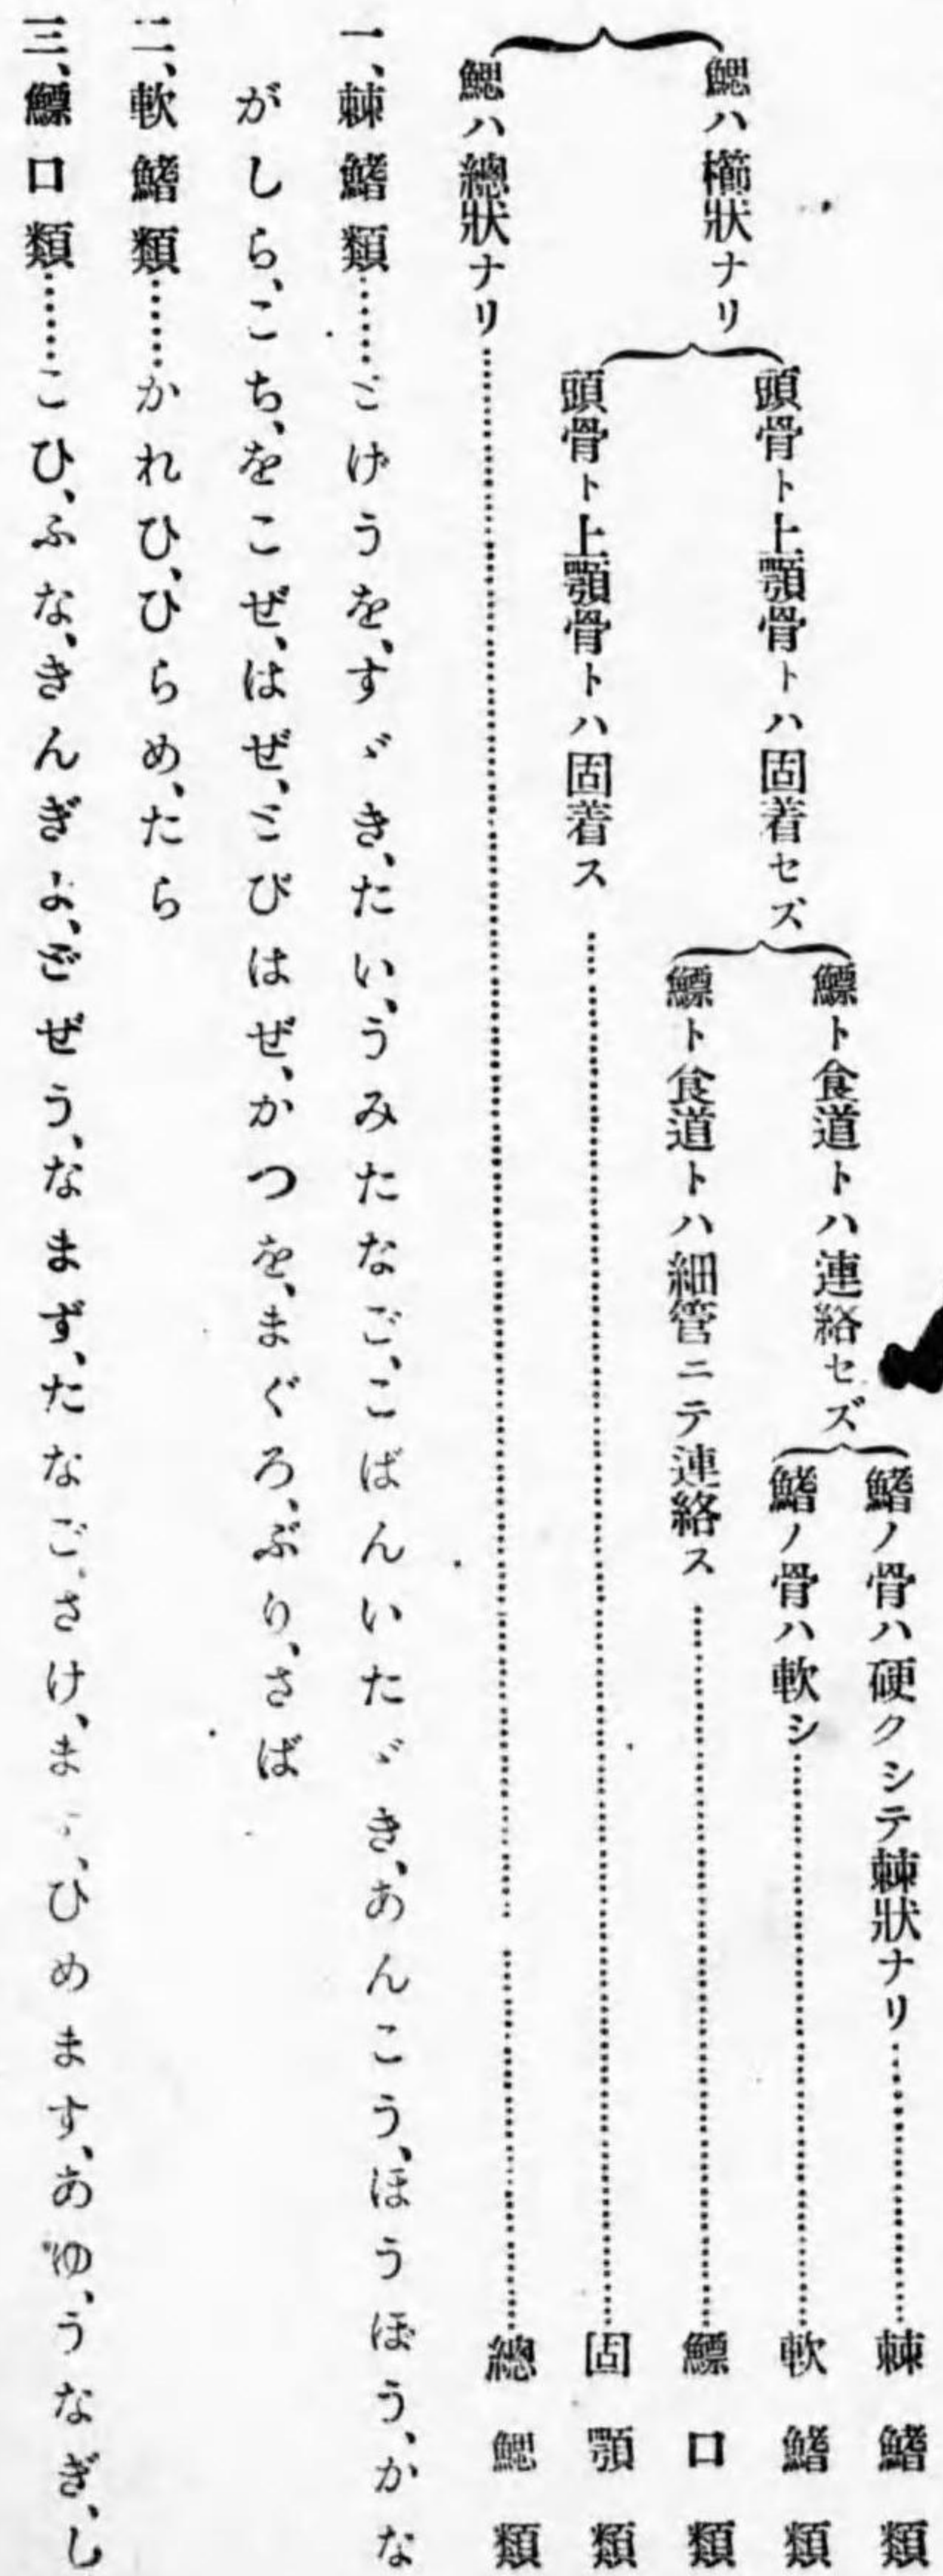 鰓ハ櫛狀ナリ
頭骨ト上顎骨トハ固着セズ
鰾ト食道トハ連絡セズ
鰭ノ骨ハ硬クシテ棘狀ナリ………棘鰭類
鰭ノ骨ハ軟シ………軟鰭類
鰾ト食道トハ細管ニテ連絡ス………鰾口類
頭骨ト上顎骨トハ固着ス………固顎類
鰓ハ總狀ナリ………總鰓類
一、棘鰭類……とげうを、すゞき、たい、うみたなご、こばんいたゞき、あんこう、ほうぼう、かな
がしら、こち、をこぜ、はぜ、とびはぜ、かつを、まぐろ、ぶり、さば
二、軟鰭類……かれひ、ひらめ、たら
三、鰾口類……こひ、ふな、きんぎよ、どぜう、なまず、たなご、さけ、ま、ひめます、あゆ、うなぎ、し